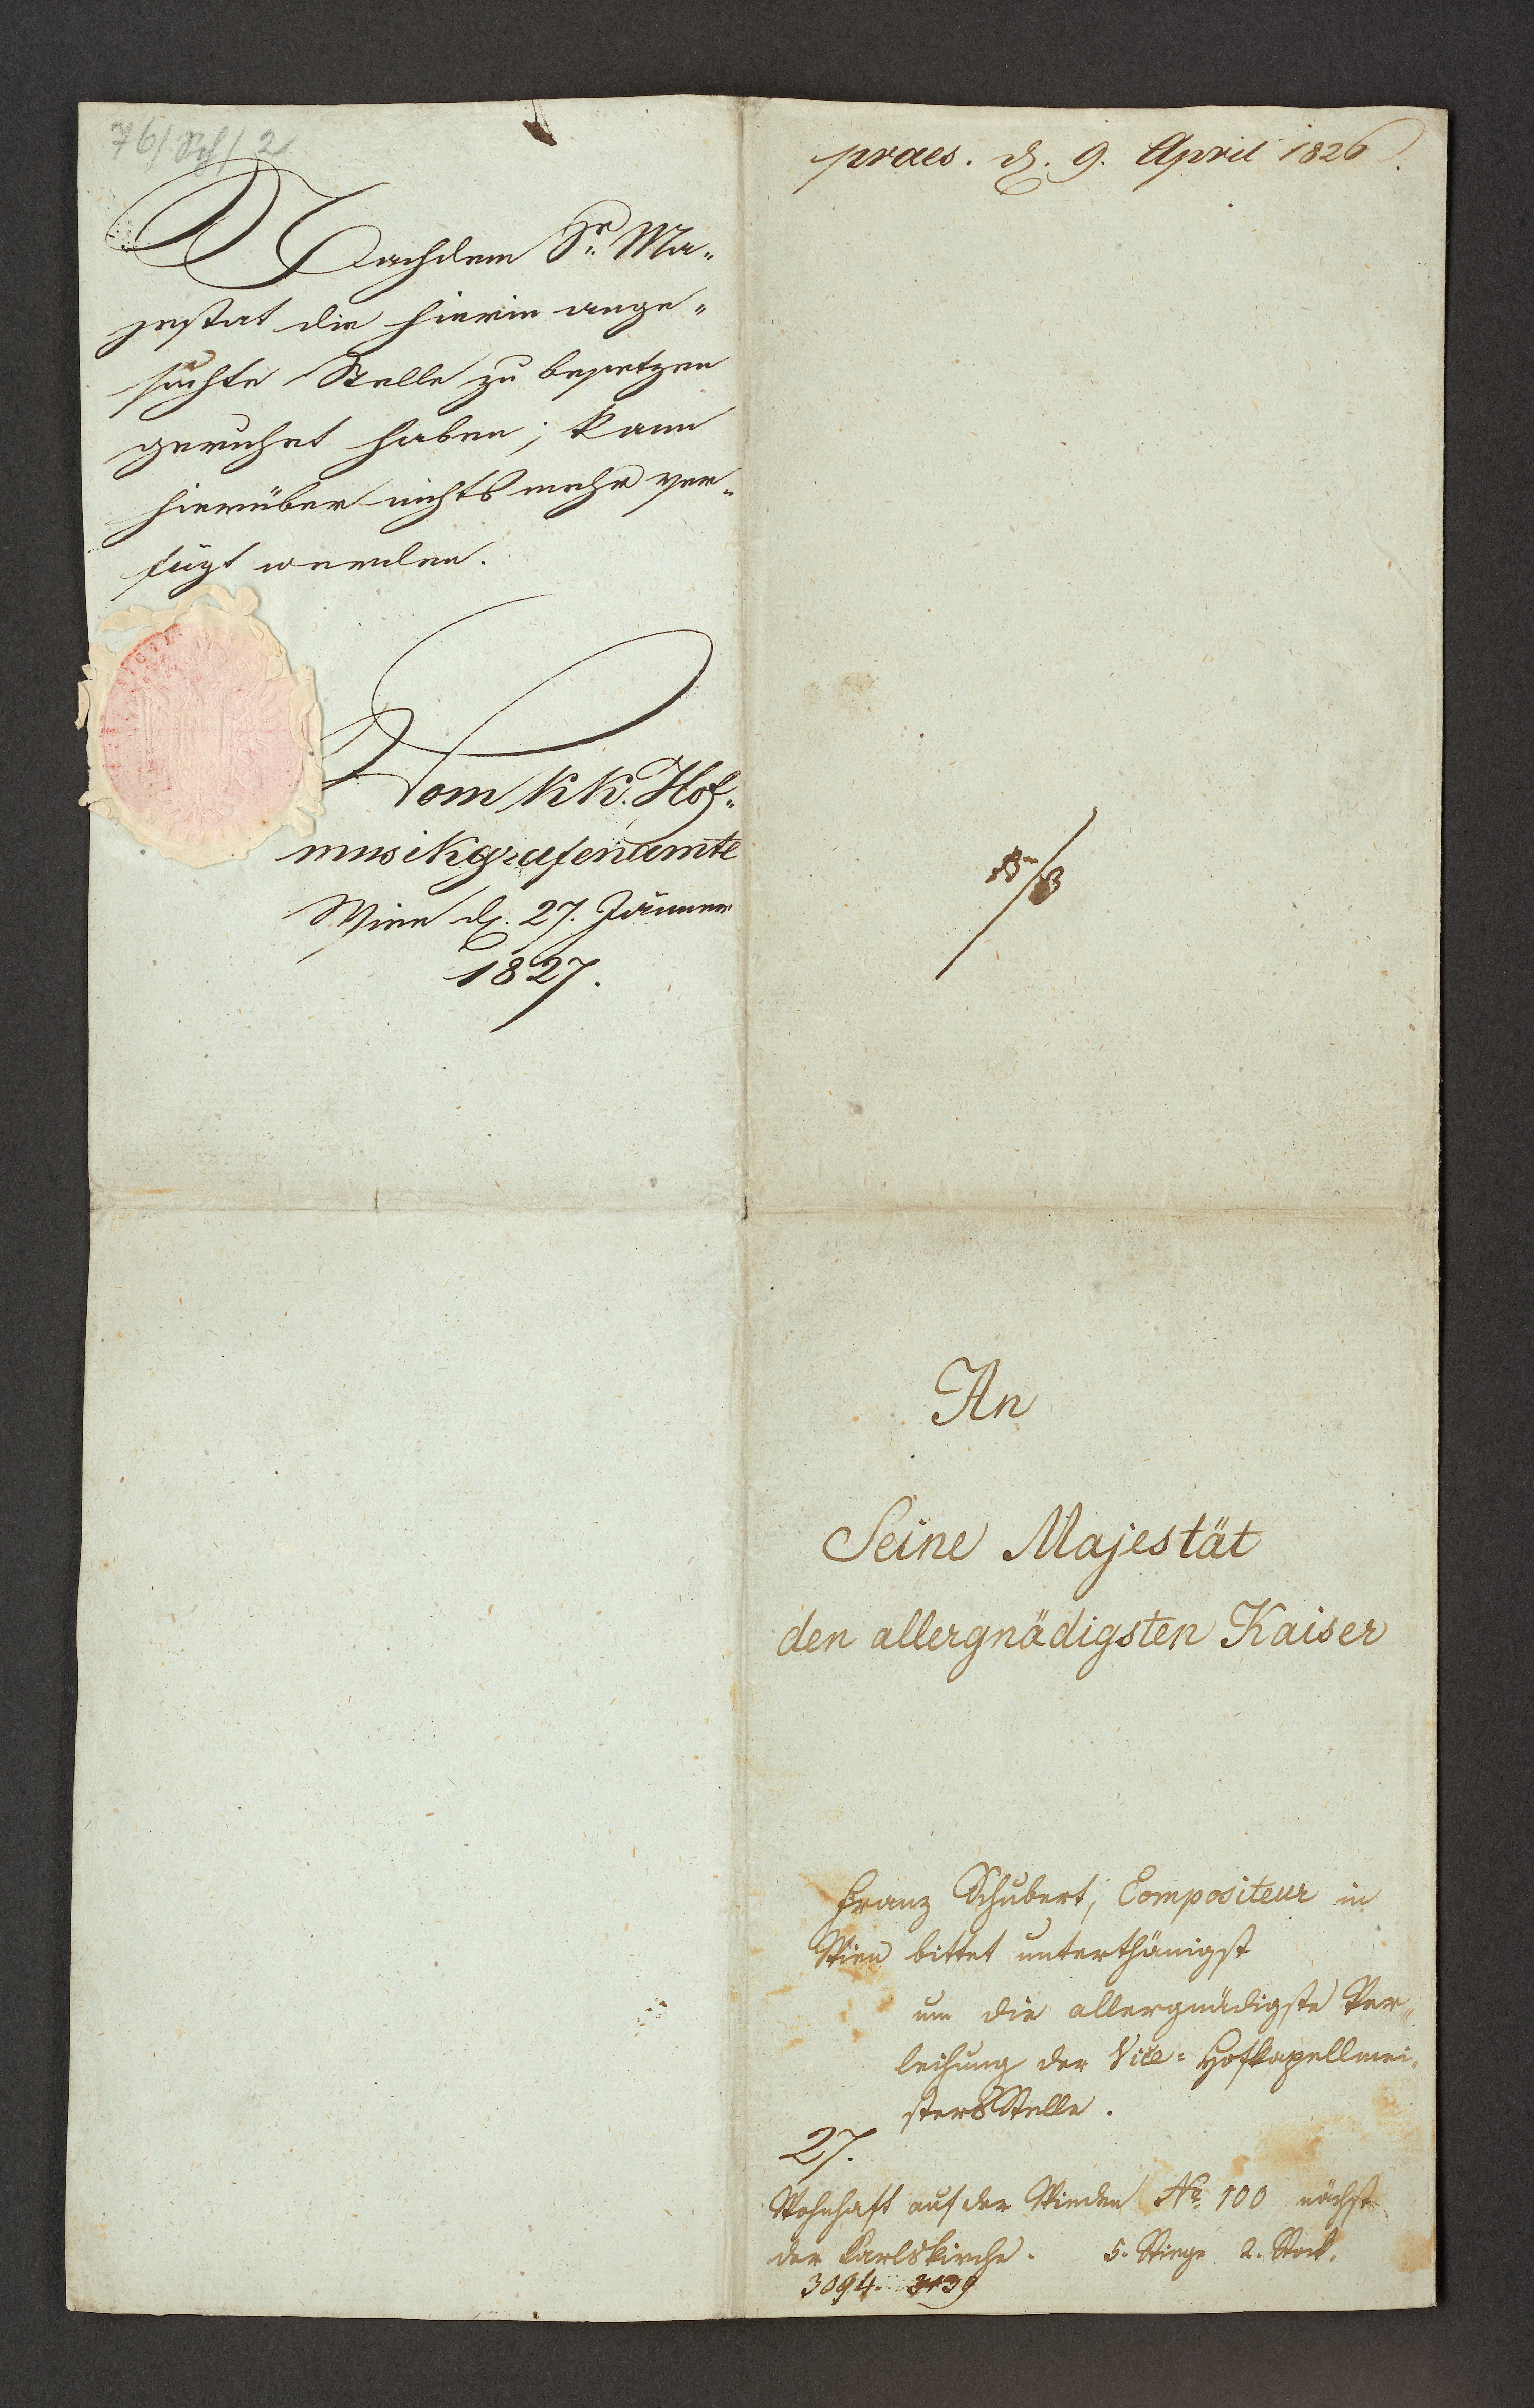 Nachdem Se. Ma„
jestat die hierin ange„
suchte Stelle zu besetzen
geruhet haben; kann
hierüber nichts mehr ver„
fügt werden.
Vom k. k. Hof„
musikgrafenamte
Wien d. 27. Jänner
1827.
praes. d. 9. April 1826.
An
Seine Majestät
den allergnädigsten Kaiser
Franz Schubert, Compositeur in
Wien bittet unterthänigst
um die allergnädigste Ver„
leihung der Vice= Hofkapellmei„
sters Stelle.
27.
Wohnhaft auf der Wieden No. 100 nächst
der Carlskirche. 5. Stiege 2. Stock.
3094. 3139